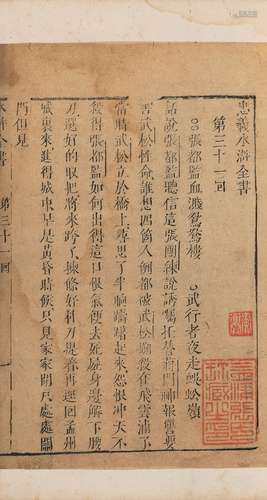 忠義水滸全書
第三十一回
張都監血濺鴛鴦樓 武行者夜走蜈蚣嶺
話說張都監聽信這張團練說誘囑托替蔣門神報讐要
害武松性命誰想四箇人倒都被武松搠殺在飛雲浦了
當時武松立於橋上尋思了半晌躊躇起來怨恨冲天不
殺得張都監如何出得這口恨氣便去死屍身邊解下腰
刀選好的取把將來跨了揀條好朴刀提着再逕回孟州
城裏來進得城中早是黃昏時候只見家家閉戶處處關
門但見
水滸全書 第三十一回